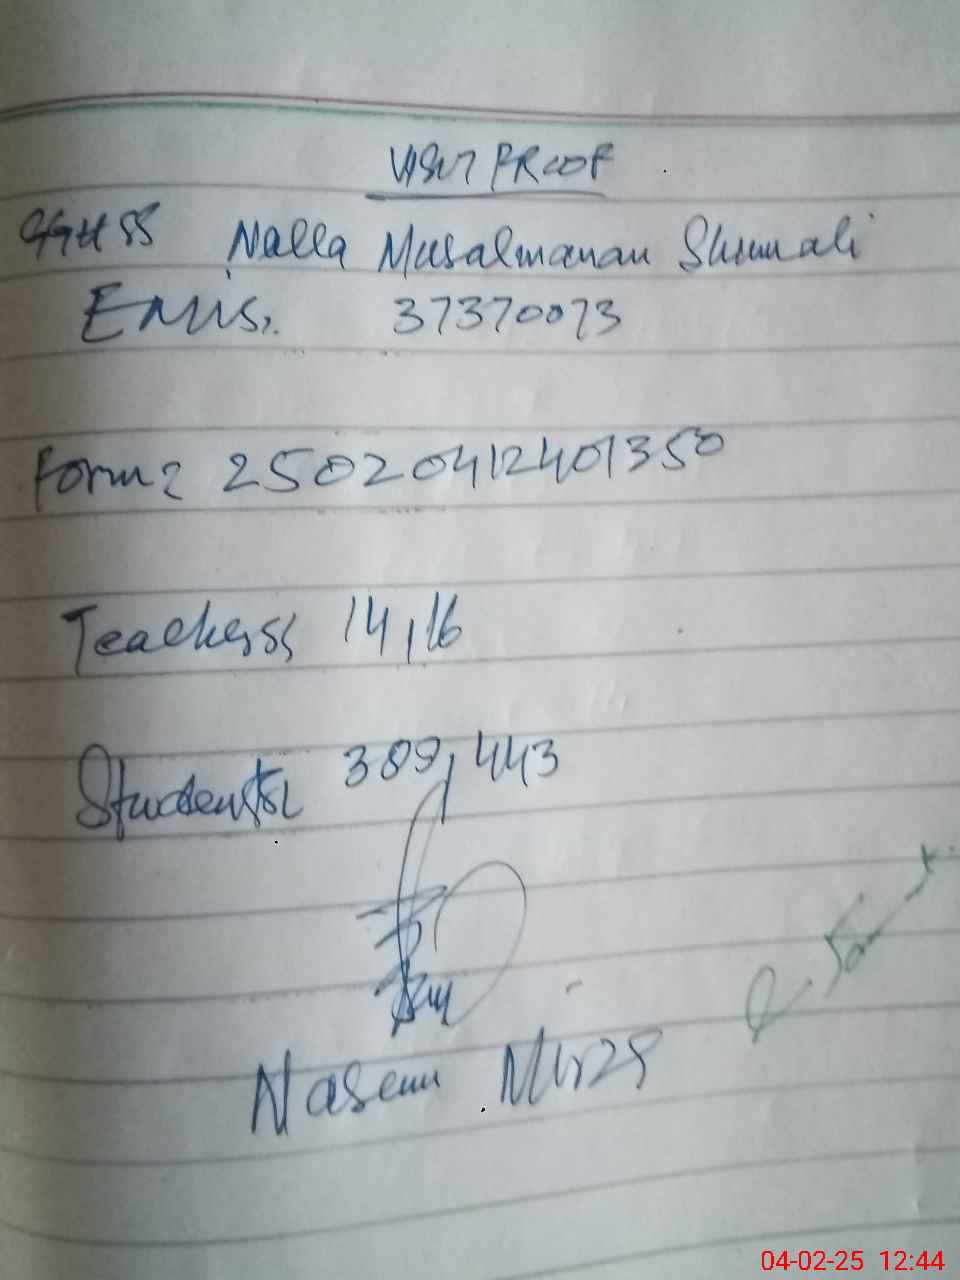 VISIT PROOF
GGHSS Nalla Musalmanan Shumali
EMIS. 37370073
Form: 25020412401350
Teachers: 14, 16
Students: 389, 443
Naseem Mirza
04-02-25 12:44